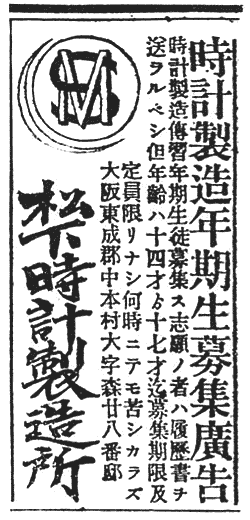 時計製造年期生募集廣告
時計製造傳習年期生徒募集ス志願ノ者ハ履歴書ヲ
送ラルベシ但年齢ハ十四才ゟ十七才迄募集期限及
定員限リナシ何時ニテモ苦シカラズ
大阪東成郡中本村大字森廿八番邸
松下時計製造所
SM